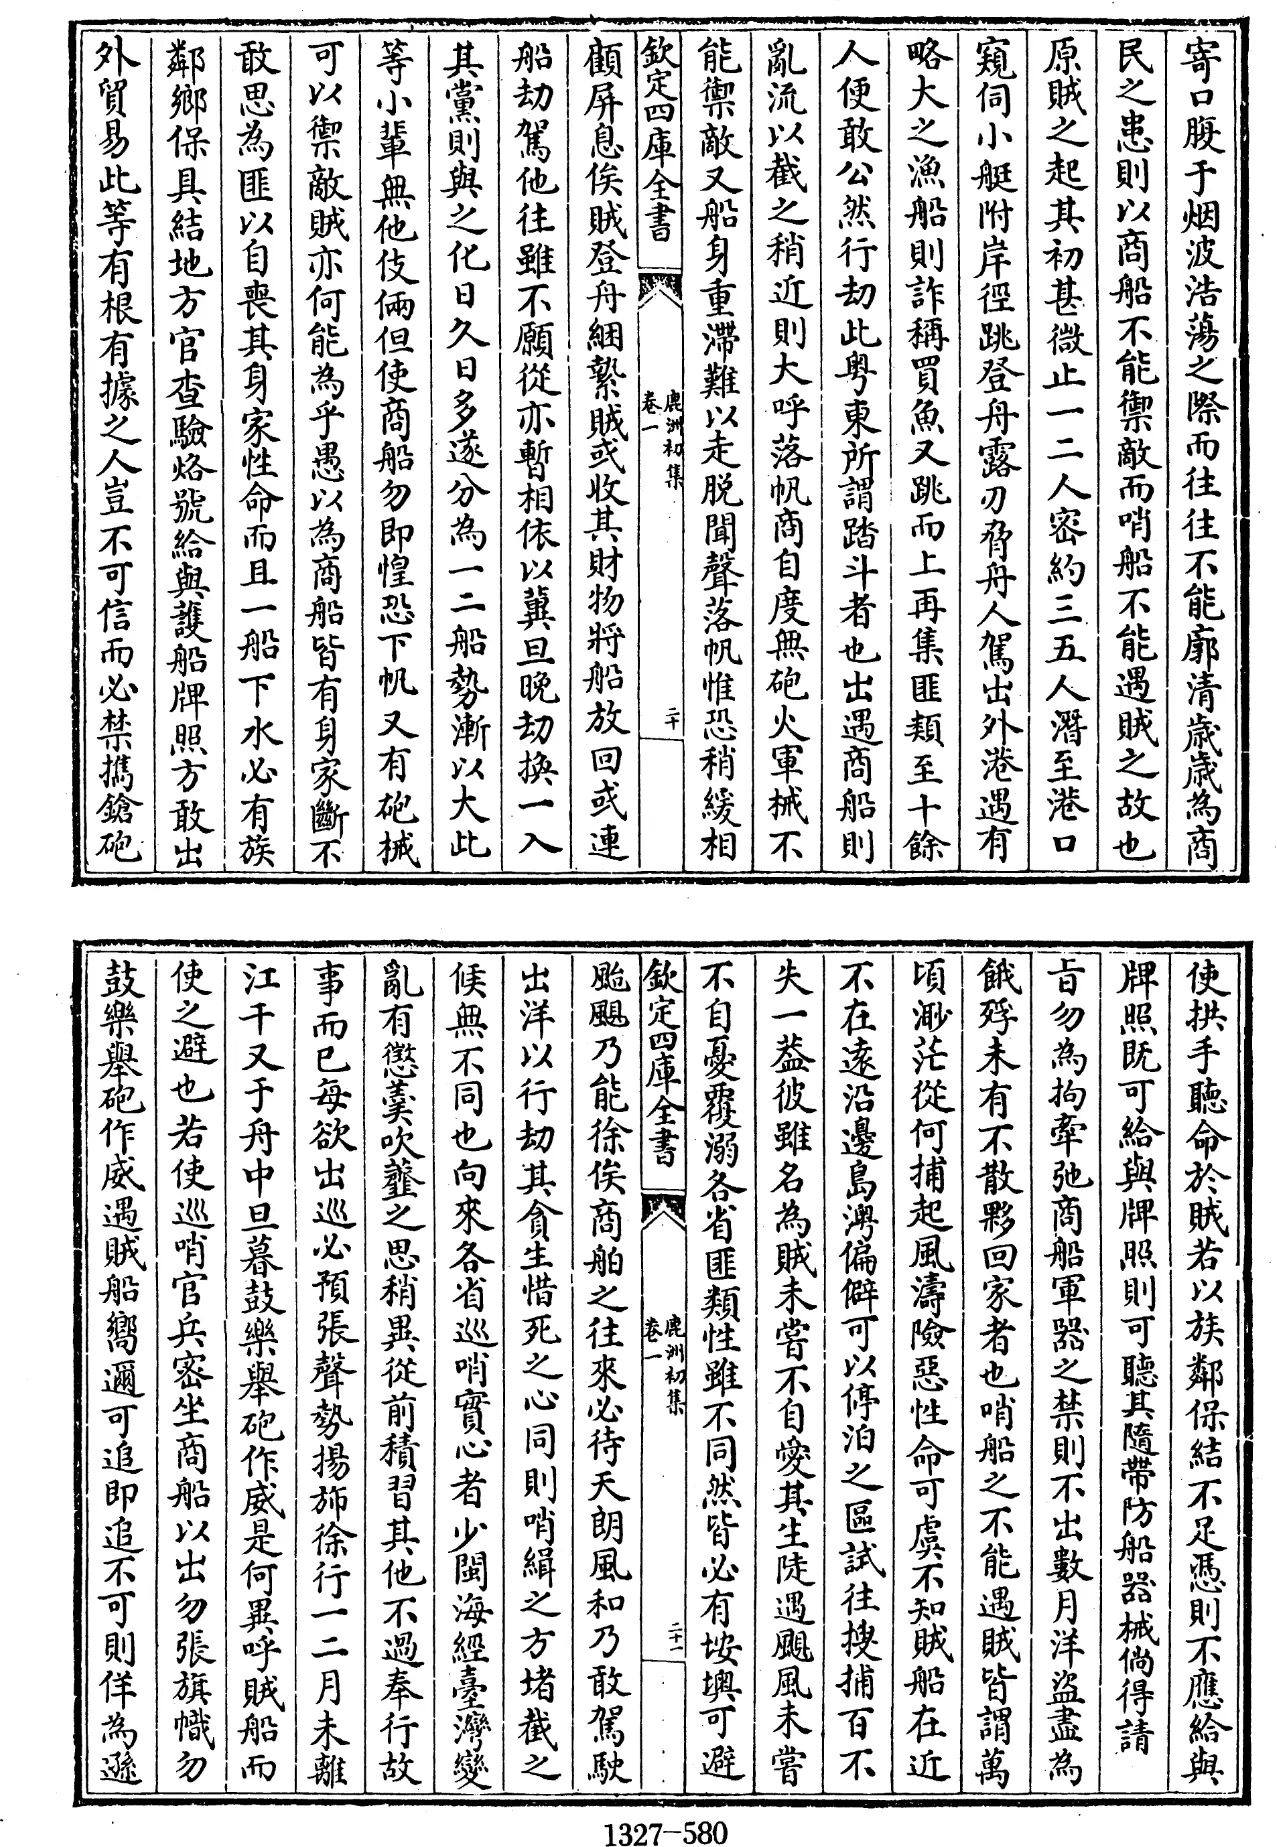 寄口腹于烟波浩蕩之際而往往不能廓清歲歲為商
民之患則以商船不能禦敵而哨船不能遇賊之故也
原賊之起其初甚微止一二人密約三五人潛至港口
窺伺小艇附岸徑跳登舟露刃脅舟人駕出外港遇有
略大之漁船則詐稱買魚又跳而上再集匪類至十餘
人便敢公然行劫此粤東所謂踏斗者也出遇商船則
亂流以截之稍近則大呼落帆商自度無砲火軍械不
能禦敵又船身重滯難以走脱聞聲落帆惟恐稍緩相
欽定四庫全書
鹿洲初集
卷一
二十
顧屏息俟賊登舟綑縶賊或收其財物將船放回或連
船劫駕他往雖不願從亦暫相依以冀旦晚劫換一入
其黨則與之化日久日多遂分為一二船勢漸以大此
等小輩無他伎倆但使商船勿即惶恐下帆又有砲械
可以禦敵賊亦何能為乎愚以為商船皆有身家斷不
敢思為匪以自喪其身家性命而且一船下水必有族
鄰鄉保具結地方官查驗烙號給與護船牌照方敢出
外貿易此等有根有據之人豈不可信而必禁攜鎗砲
使拱手聽命於賊若以族鄰保結不足憑則不應給與
牌照既可給與牌照則可聽其隨帶防船器械倘得請
旨勿為拘牽弛商船軍器之禁則不出數月洋盜盡為
餓殍未有不散夥回家者也哨船之不能遇賊皆謂萬
頃渺茫從何捕起風濤險惡性命可虞不知賊船在近
不在遠沿邊島澳偏僻可以停泊之區試往搜捕百不
失一葢彼雖名為賊未嘗不自愛其生陡遇颶風未嘗
不自憂覆溺各省匪類性雖不同然皆必有垵墺可避
欽定四庫全書
鹿洲初集
卷一
二十一
颱颶乃能徐俟商舶之往來必待天朗風和乃敢駕駛
出洋以行劫其貪生惜死之心同則哨緝之方堵截之
候無不同也向來各省巡哨實心者少閩海經臺灣變
亂有懲羮吹虀之思稍異從前積習其他不過奉行故
事而已每欲出巡必預張聲勢揚斾徐行一二月未離
江干又于舟中旦暮鼓樂舉砲作威是何異呼賊船而
使之避也若使巡哨官兵密坐商船以出勿張旗幟勿
鼓樂舉砲作威遇賊船嚮邇可追即追不可則佯為遜
1327-580